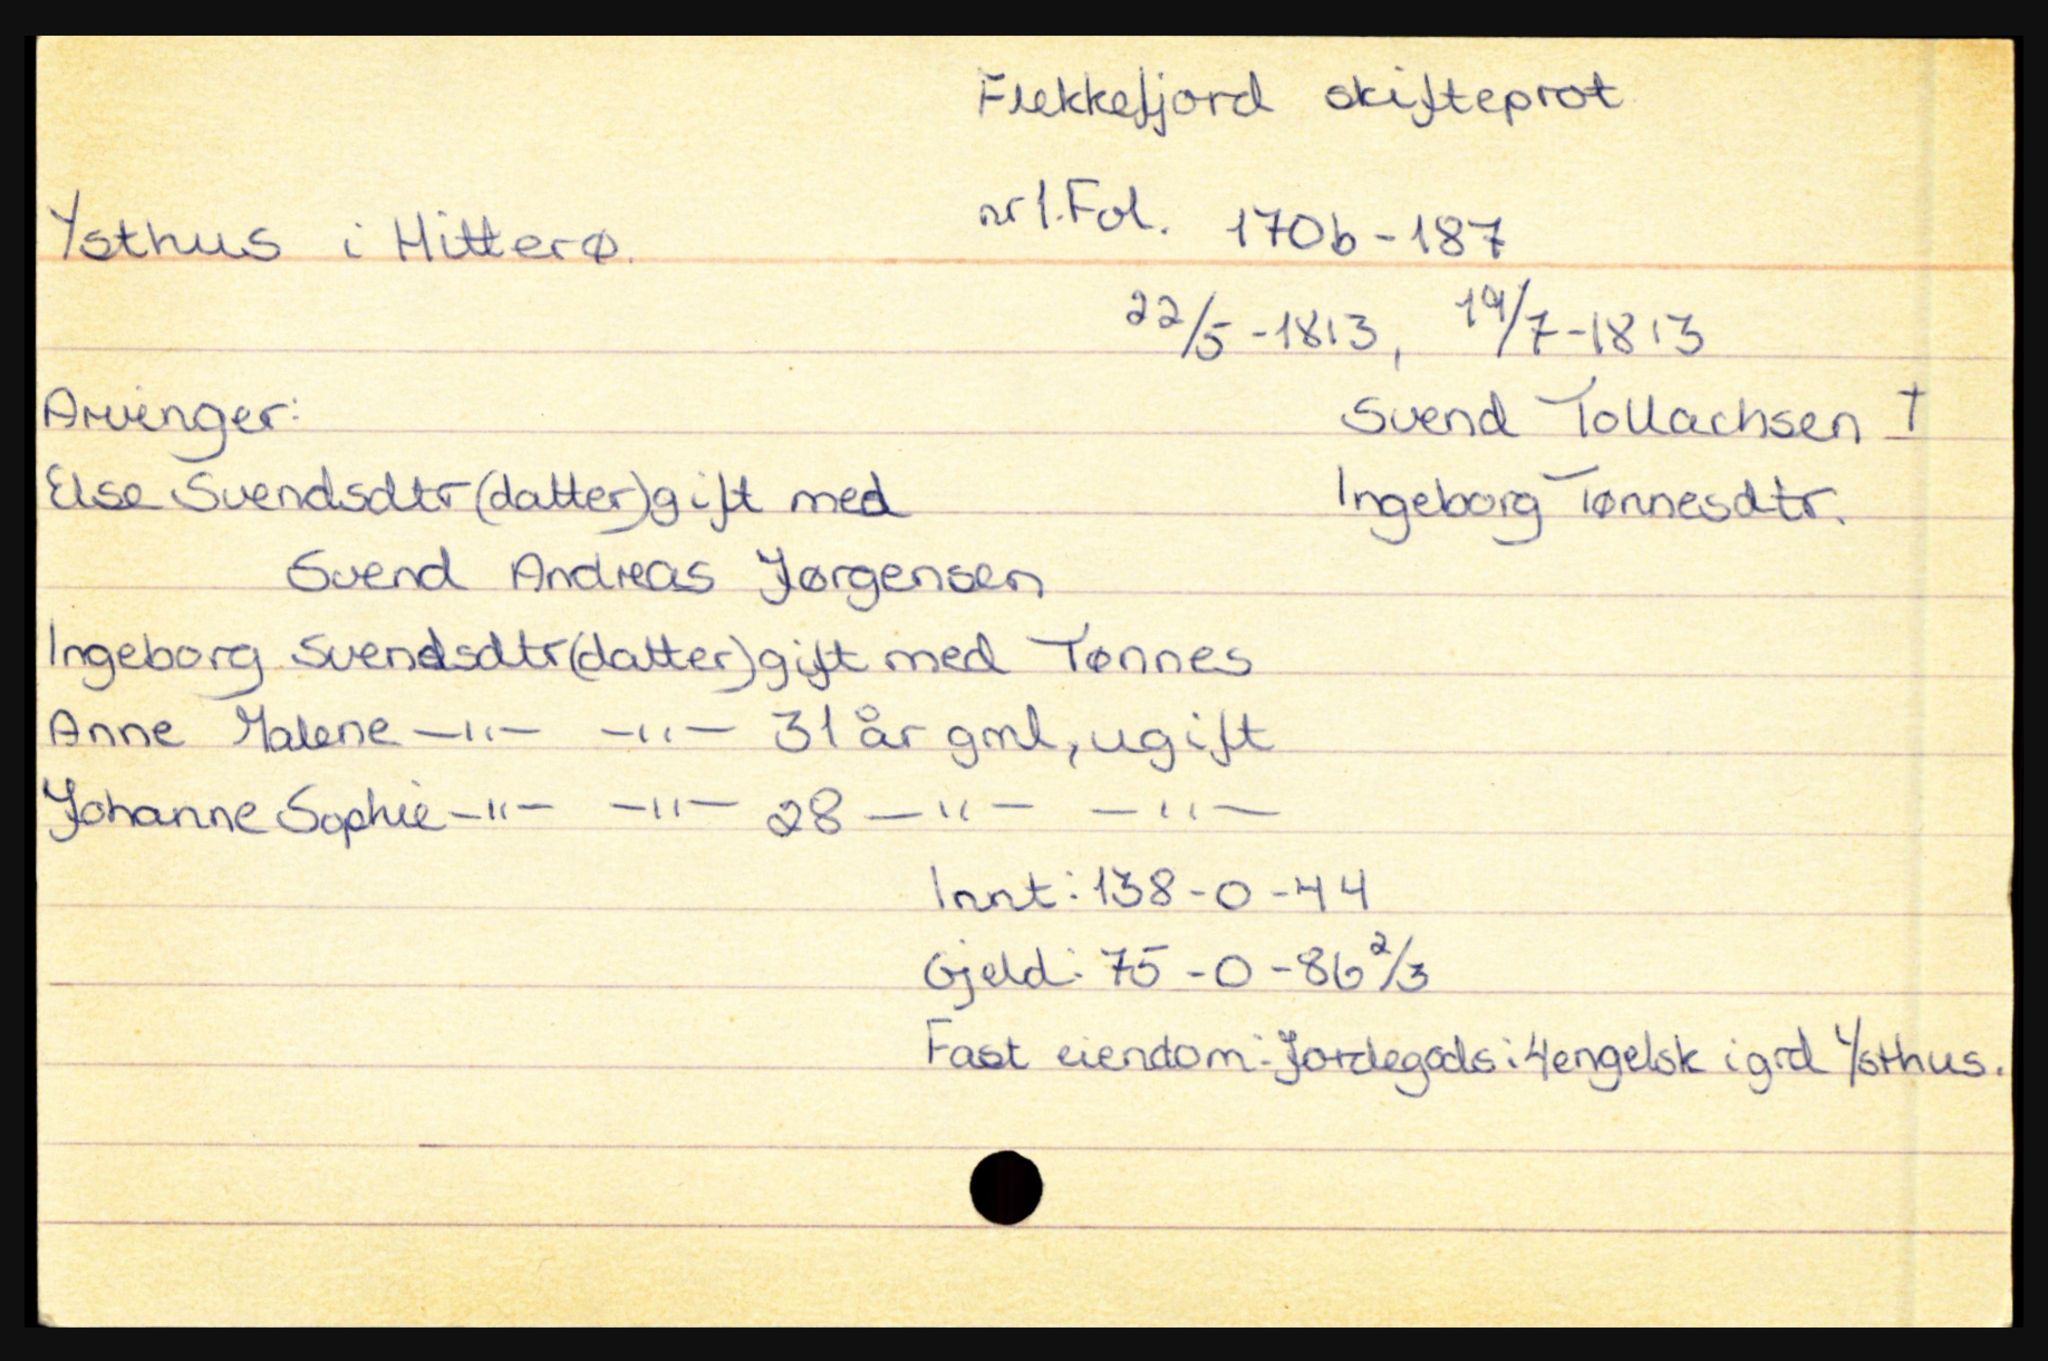 Flekkefjord skifteprot
nr 1. Fol. 170b - 187
Ysthus i Hitterø.
22/5 - 1813, 19/7 - 1813
Arvinger:
Svend Tollachsen †
Else Svendsdtr (datter) gift med
Ingeborg Tønnesdtr.
Svend Andreas Jørgensen
Ingeborg Svendsdtr (datter) gift med Tønnes
Anne Malene —"— —"— 31 år gml, ugift
Johanne Sophie —"— —"— 28 —"— —"—
Innt: 138 - 0 - 44
Gjeld: 75 - 0 - 86 2/3
Fast eiendom: Jordegods i 4 engelsk i grd Ysthus.